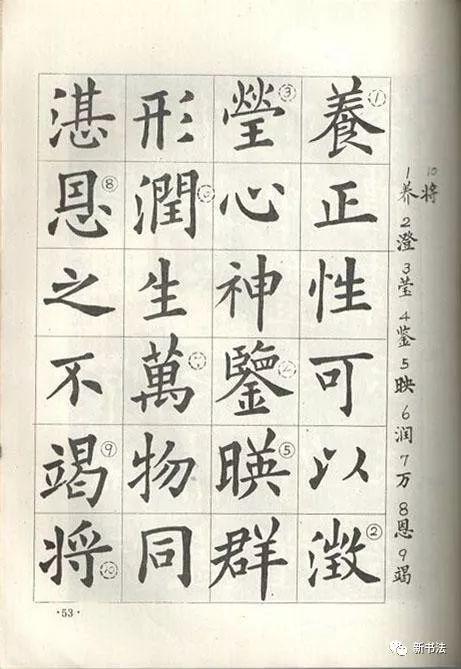 養①正性可以澂②
瑩③心神鑒④暎⑤群
形潤⑥生萬⑦物同
湛恩⑧之不竭⑨将⑩
1养 2澄 3莹 4鉴 5映 6润 7万 8恩 9竭
10将
·53·
新书法